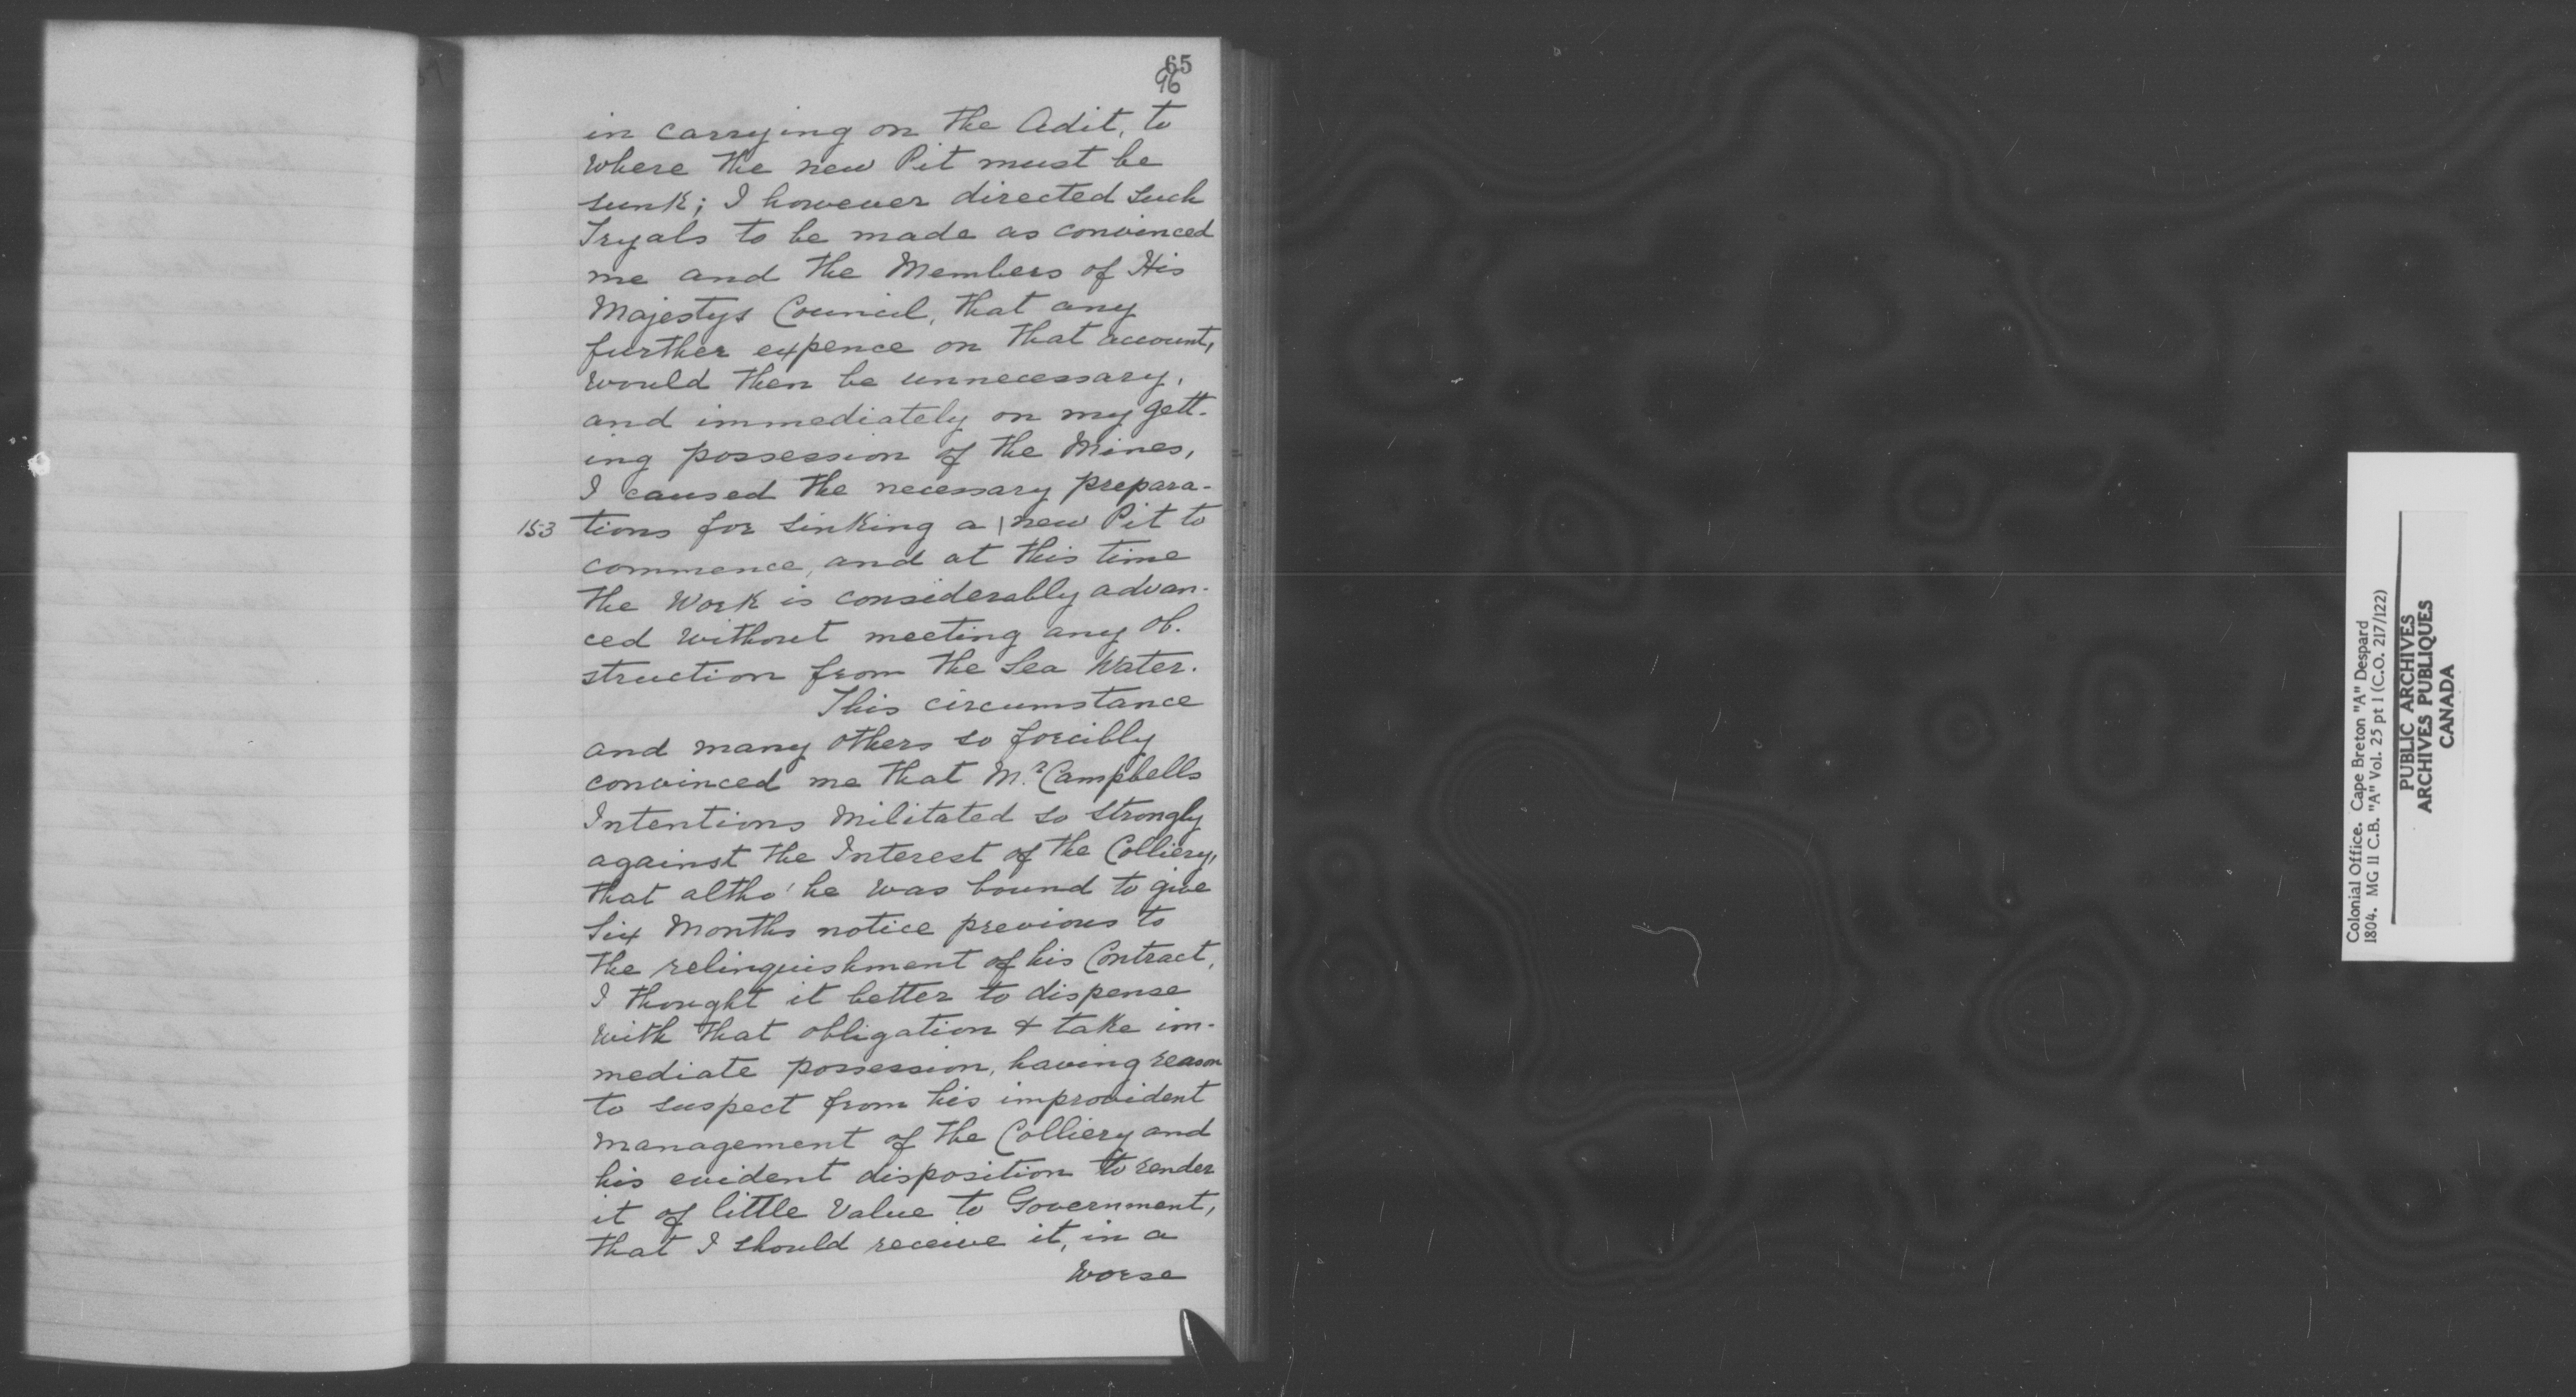 65
96
in carrying on the Adit, to
where the new Pit must be
sunk; I however directed such
Tryals to be made as convinced
me and the Members of His
Majestys Council, that any
further expence on that account,
would then be unnecessary,
and immediately on my gett-
ing possession of the Mines,
I caused the necessary prepara-
153 tions for sinking a | new Pit to
commence, and at this time
the Work is considerably advan-
ced without meeting any ob-
struction from the Sea Water.
This circumstance
and many others so forcibly
convinced me that Mr. Campbells
Intentions Militated so strongly
against the Interest of the Colliery,
that altho' he was bound to give
Six Months notice previous to
the relinquishment of his Contract,
I thought it better to dispense
with that obligation & take im-
mediate possession, having reason
to suspect from his improvident
management of the Colliery and
his evident disposition to render
it of little Value to Government,
that I should receive it, in a
worse
Colonial Office. Cape Breton "A" Despard
1804. MG 11 C.B. "A" Vol. 25 pt 1 (C.O. 217/122)
PUBLIC ARCHIVES
ARCHIVES PUBLIQUES
CANADA